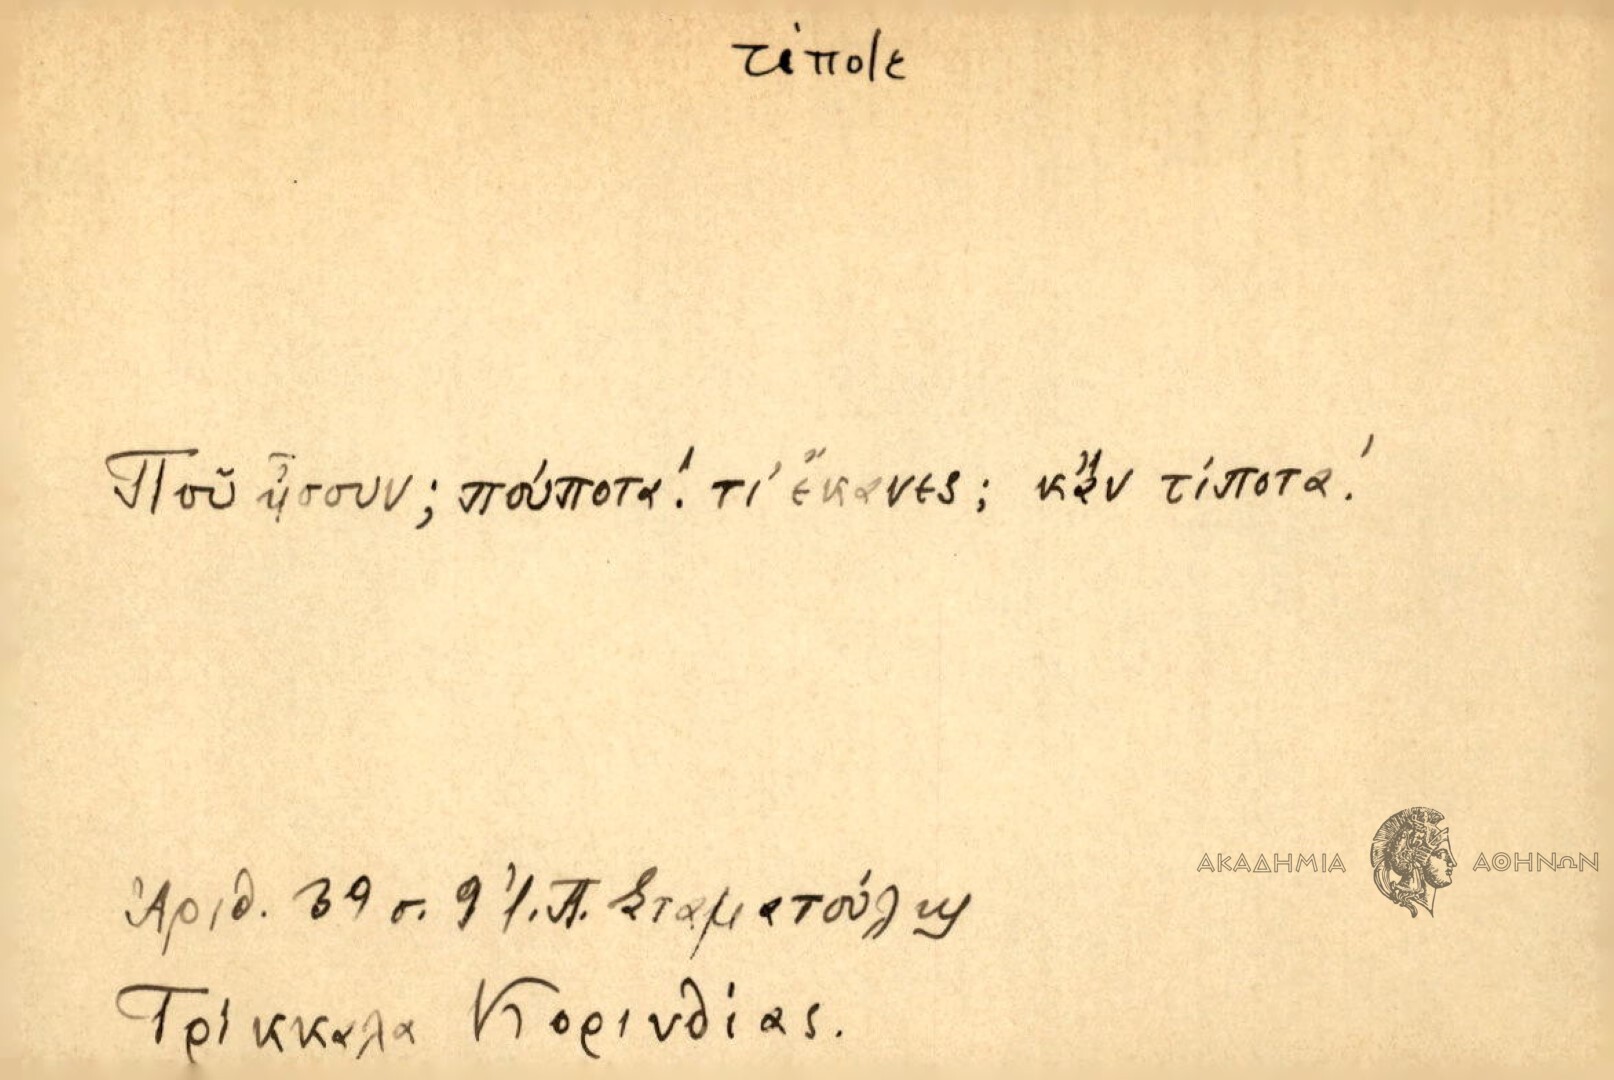 τίποτε
Ποῦ ἦσουν; πούποτα! τί ἔκανες; κἄν τίποτα!
ΑΚΑΔΗΜΙΑ ΑΘΗΝΩΝ
Ἀριθ. 39 σ. 9 Ἰ. Π. Σταματούλης
Τρίκκαλα Κορινθίας.